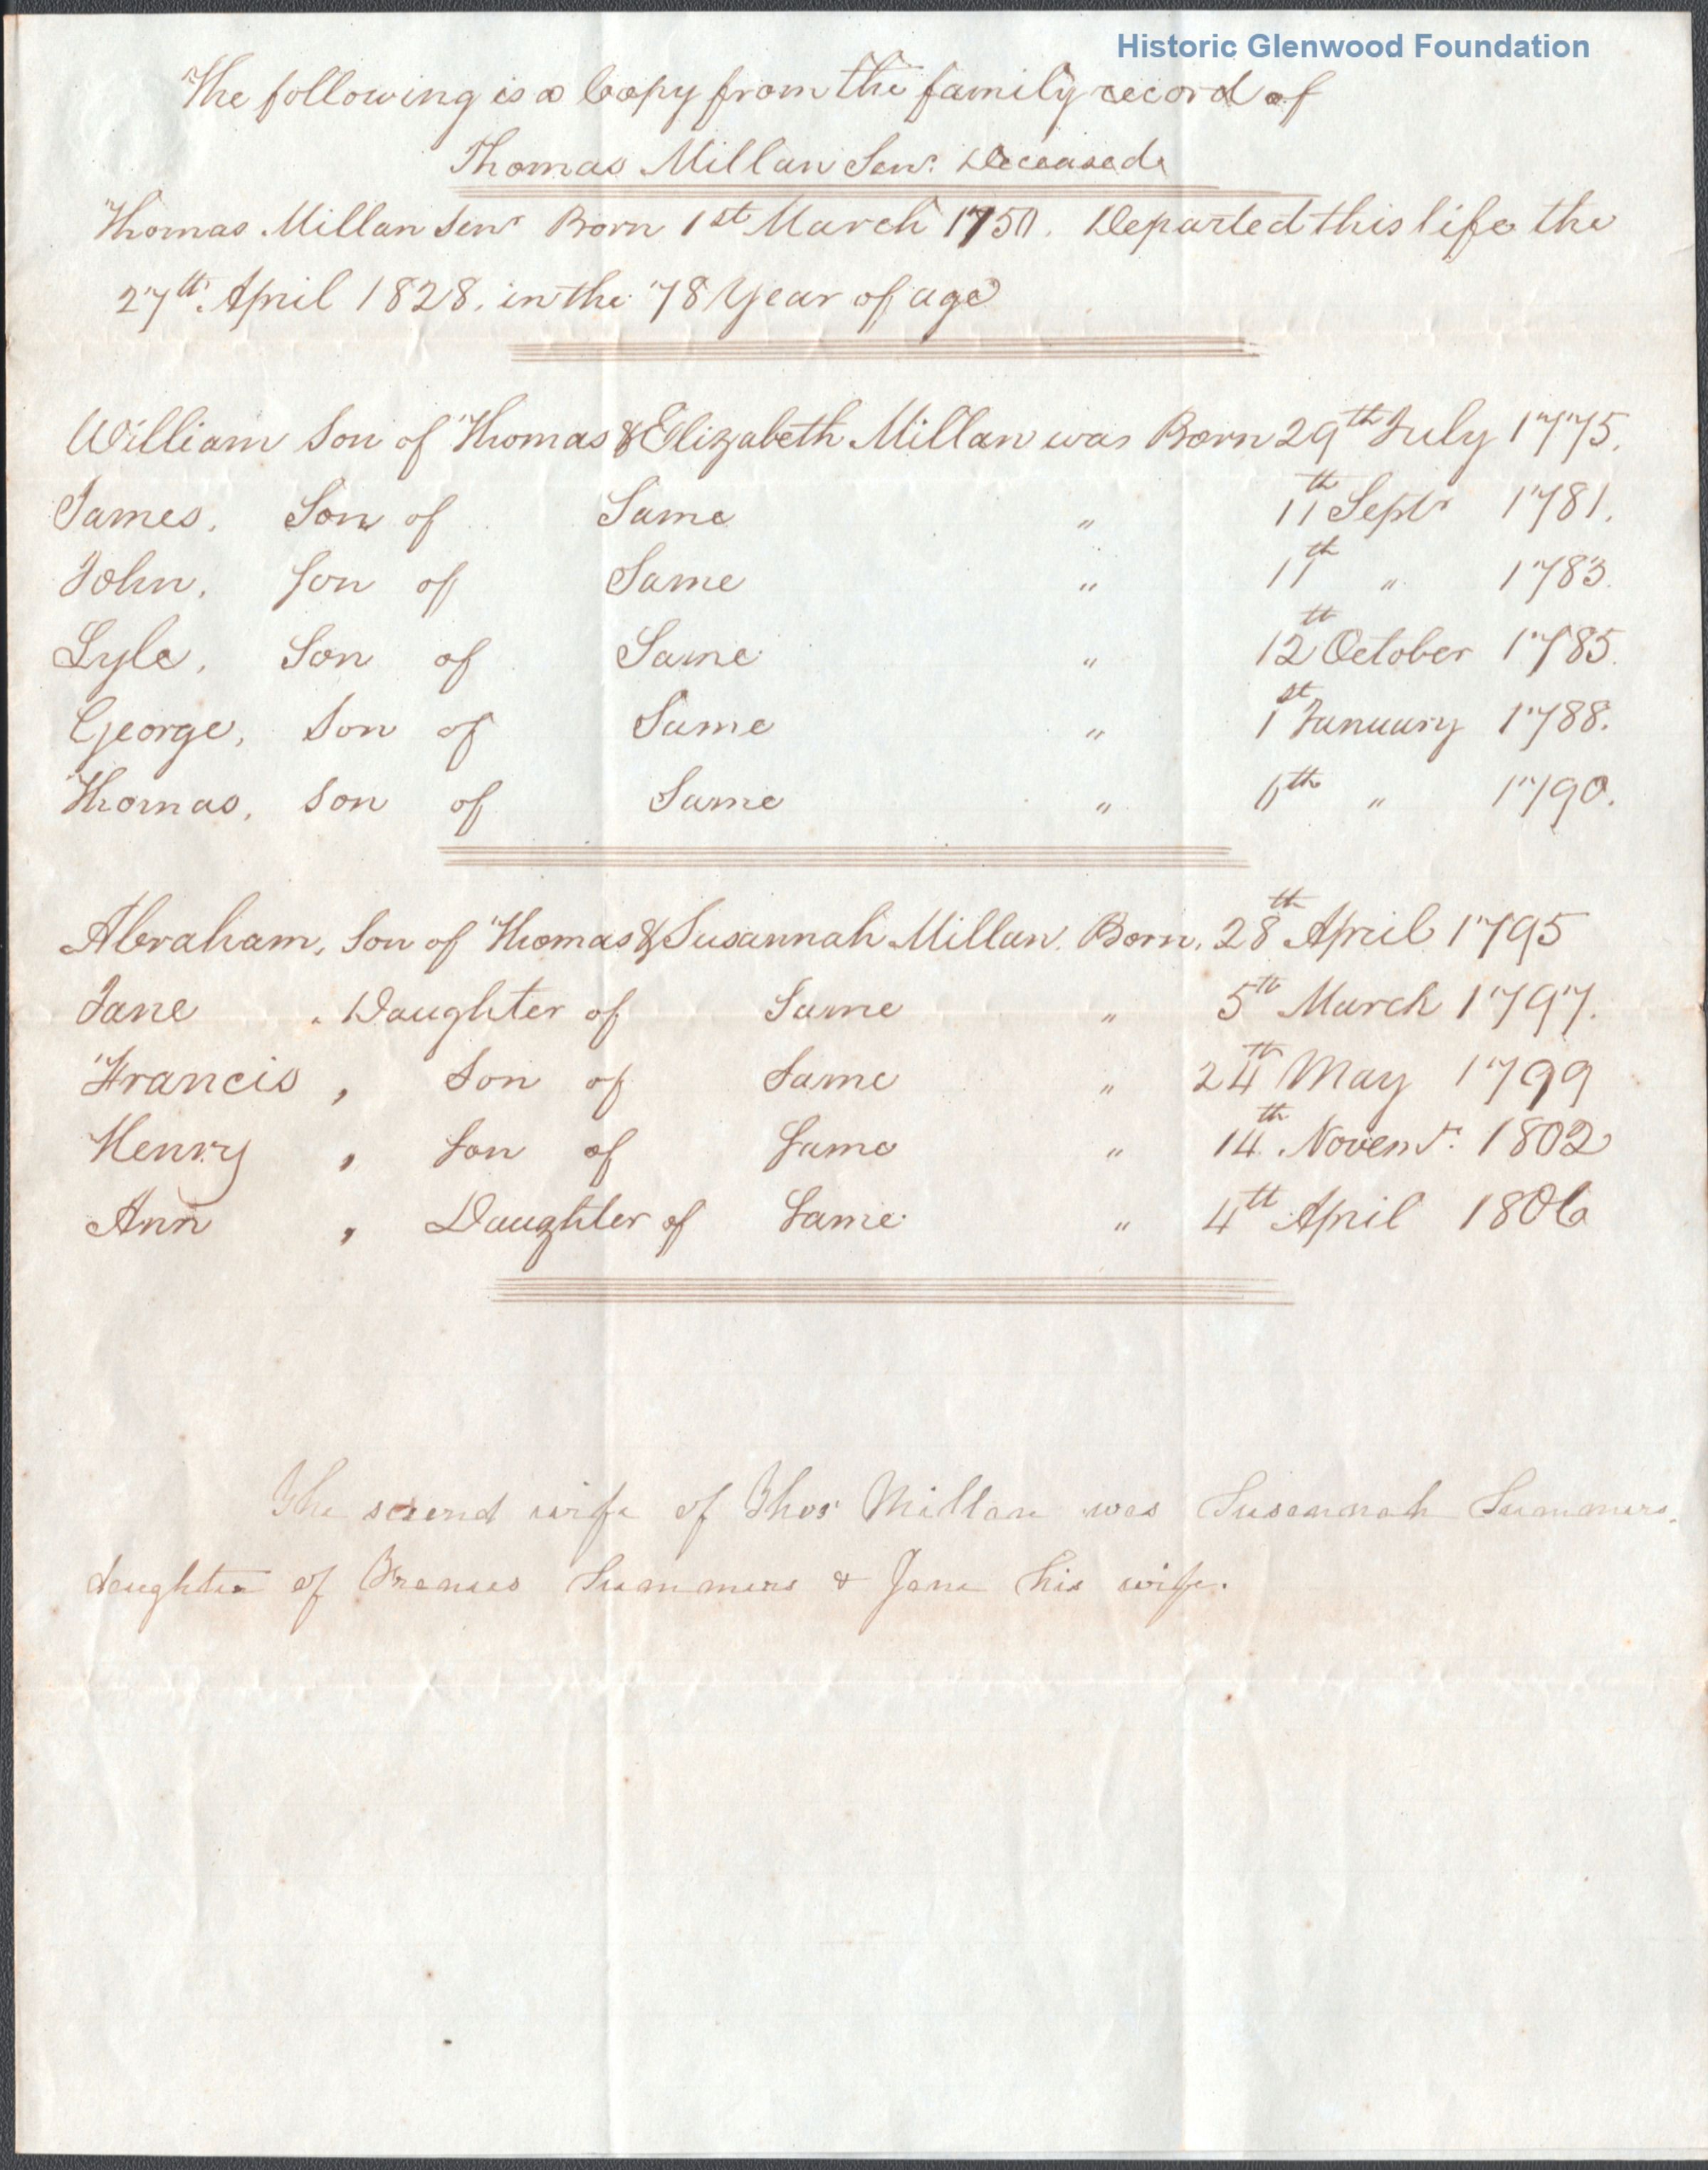 Historic Glenwood Foundation
The following is a Copy from the family record of
Thomas Millan Senr. Deceased
Thomas Millan Senr Born 1st March 1750. Departed this life the
27th. April 1828. in the 78 Year of age
William Son of Thomas & Elizabeth Millan was Born 29th July 1775.
James, Son of Same " 11th Septr 1781.
John, Son of Same " 11th " 1783.
Lyle, Son of Same " 12th October 1785.
George, Son of Same " 1st January 1788.
Thomas, Son of Same " 6th " 1790.
Abraham, Son of Thomas & Susannah Millan. Born, 28th April 1795
Jane , Daughter of Same " 5th March 1797.
Francis , Son of Same " 24th May 1799
Henry , Son of Same " 14th Novemr. 1802
Ann , Daughter of Same " 4th April 1806
The second wife of Thos Millan was Susannah Summers,
daughter of Frances Summers & Jane his wife.